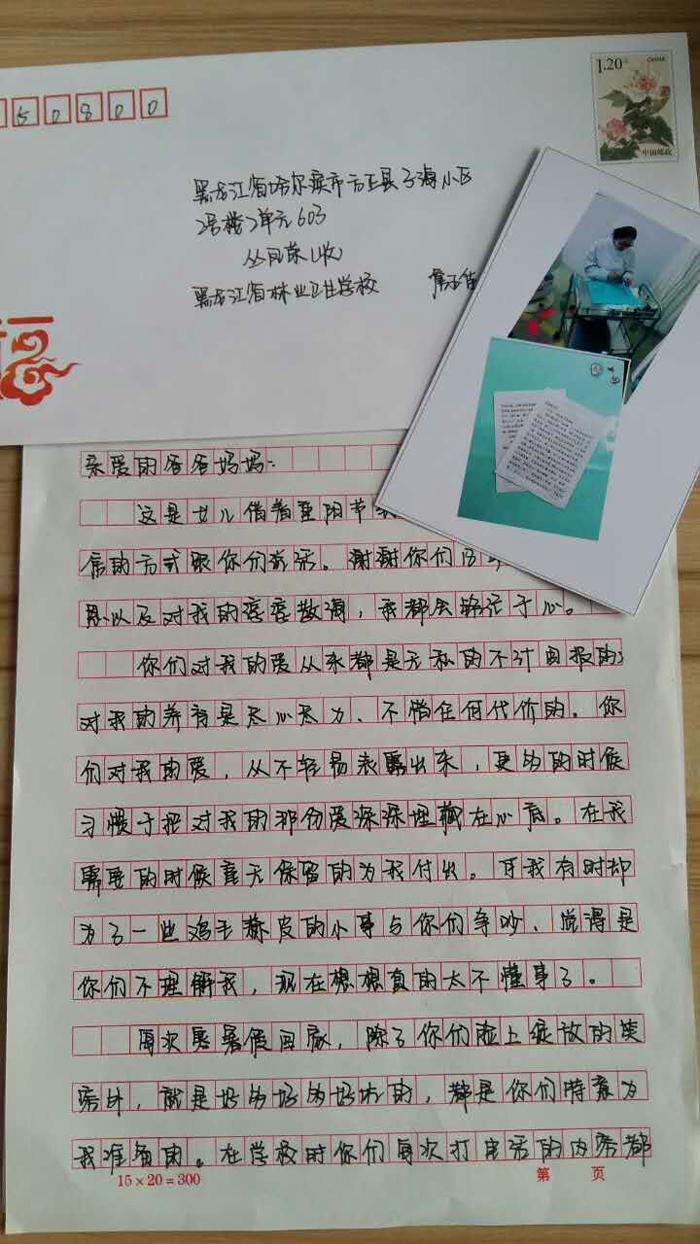 50800
1.20
CHINA
中国邮政
黑龙江省哈尔滨市方正县子海小区
2号楼2单元603
丛凤荣(收)
黑龙江省林业卫生学校
亲爱的爸爸妈妈：
这是女儿借着重阳节
信的方式跟你们说话。谢谢你们的
恩以及对我的谆谆教诲，我都会铭记于心。
你们对我的爱从来都是无私的不计回报的；
对我的养育是尽心尽力、不惜任何代价的。你
们对我的爱，从不轻易表露出来，更多的时候
习惯于把对我的那份爱深深埋藏在心底。在我
需要的时候毫无保留的为我付出。可我有时却
为了一些鸡毛蒜皮的小事与你们争吵、觉得是
你们不理解我，现在想想真的太不懂事了。
每次寒暑假回家，除了你们脸上绽放的笑
容外，就是好多好多好吃的，都是你们特意为
我准备的。在学校时你们每次打电话的内容都
15×20=300
第 页